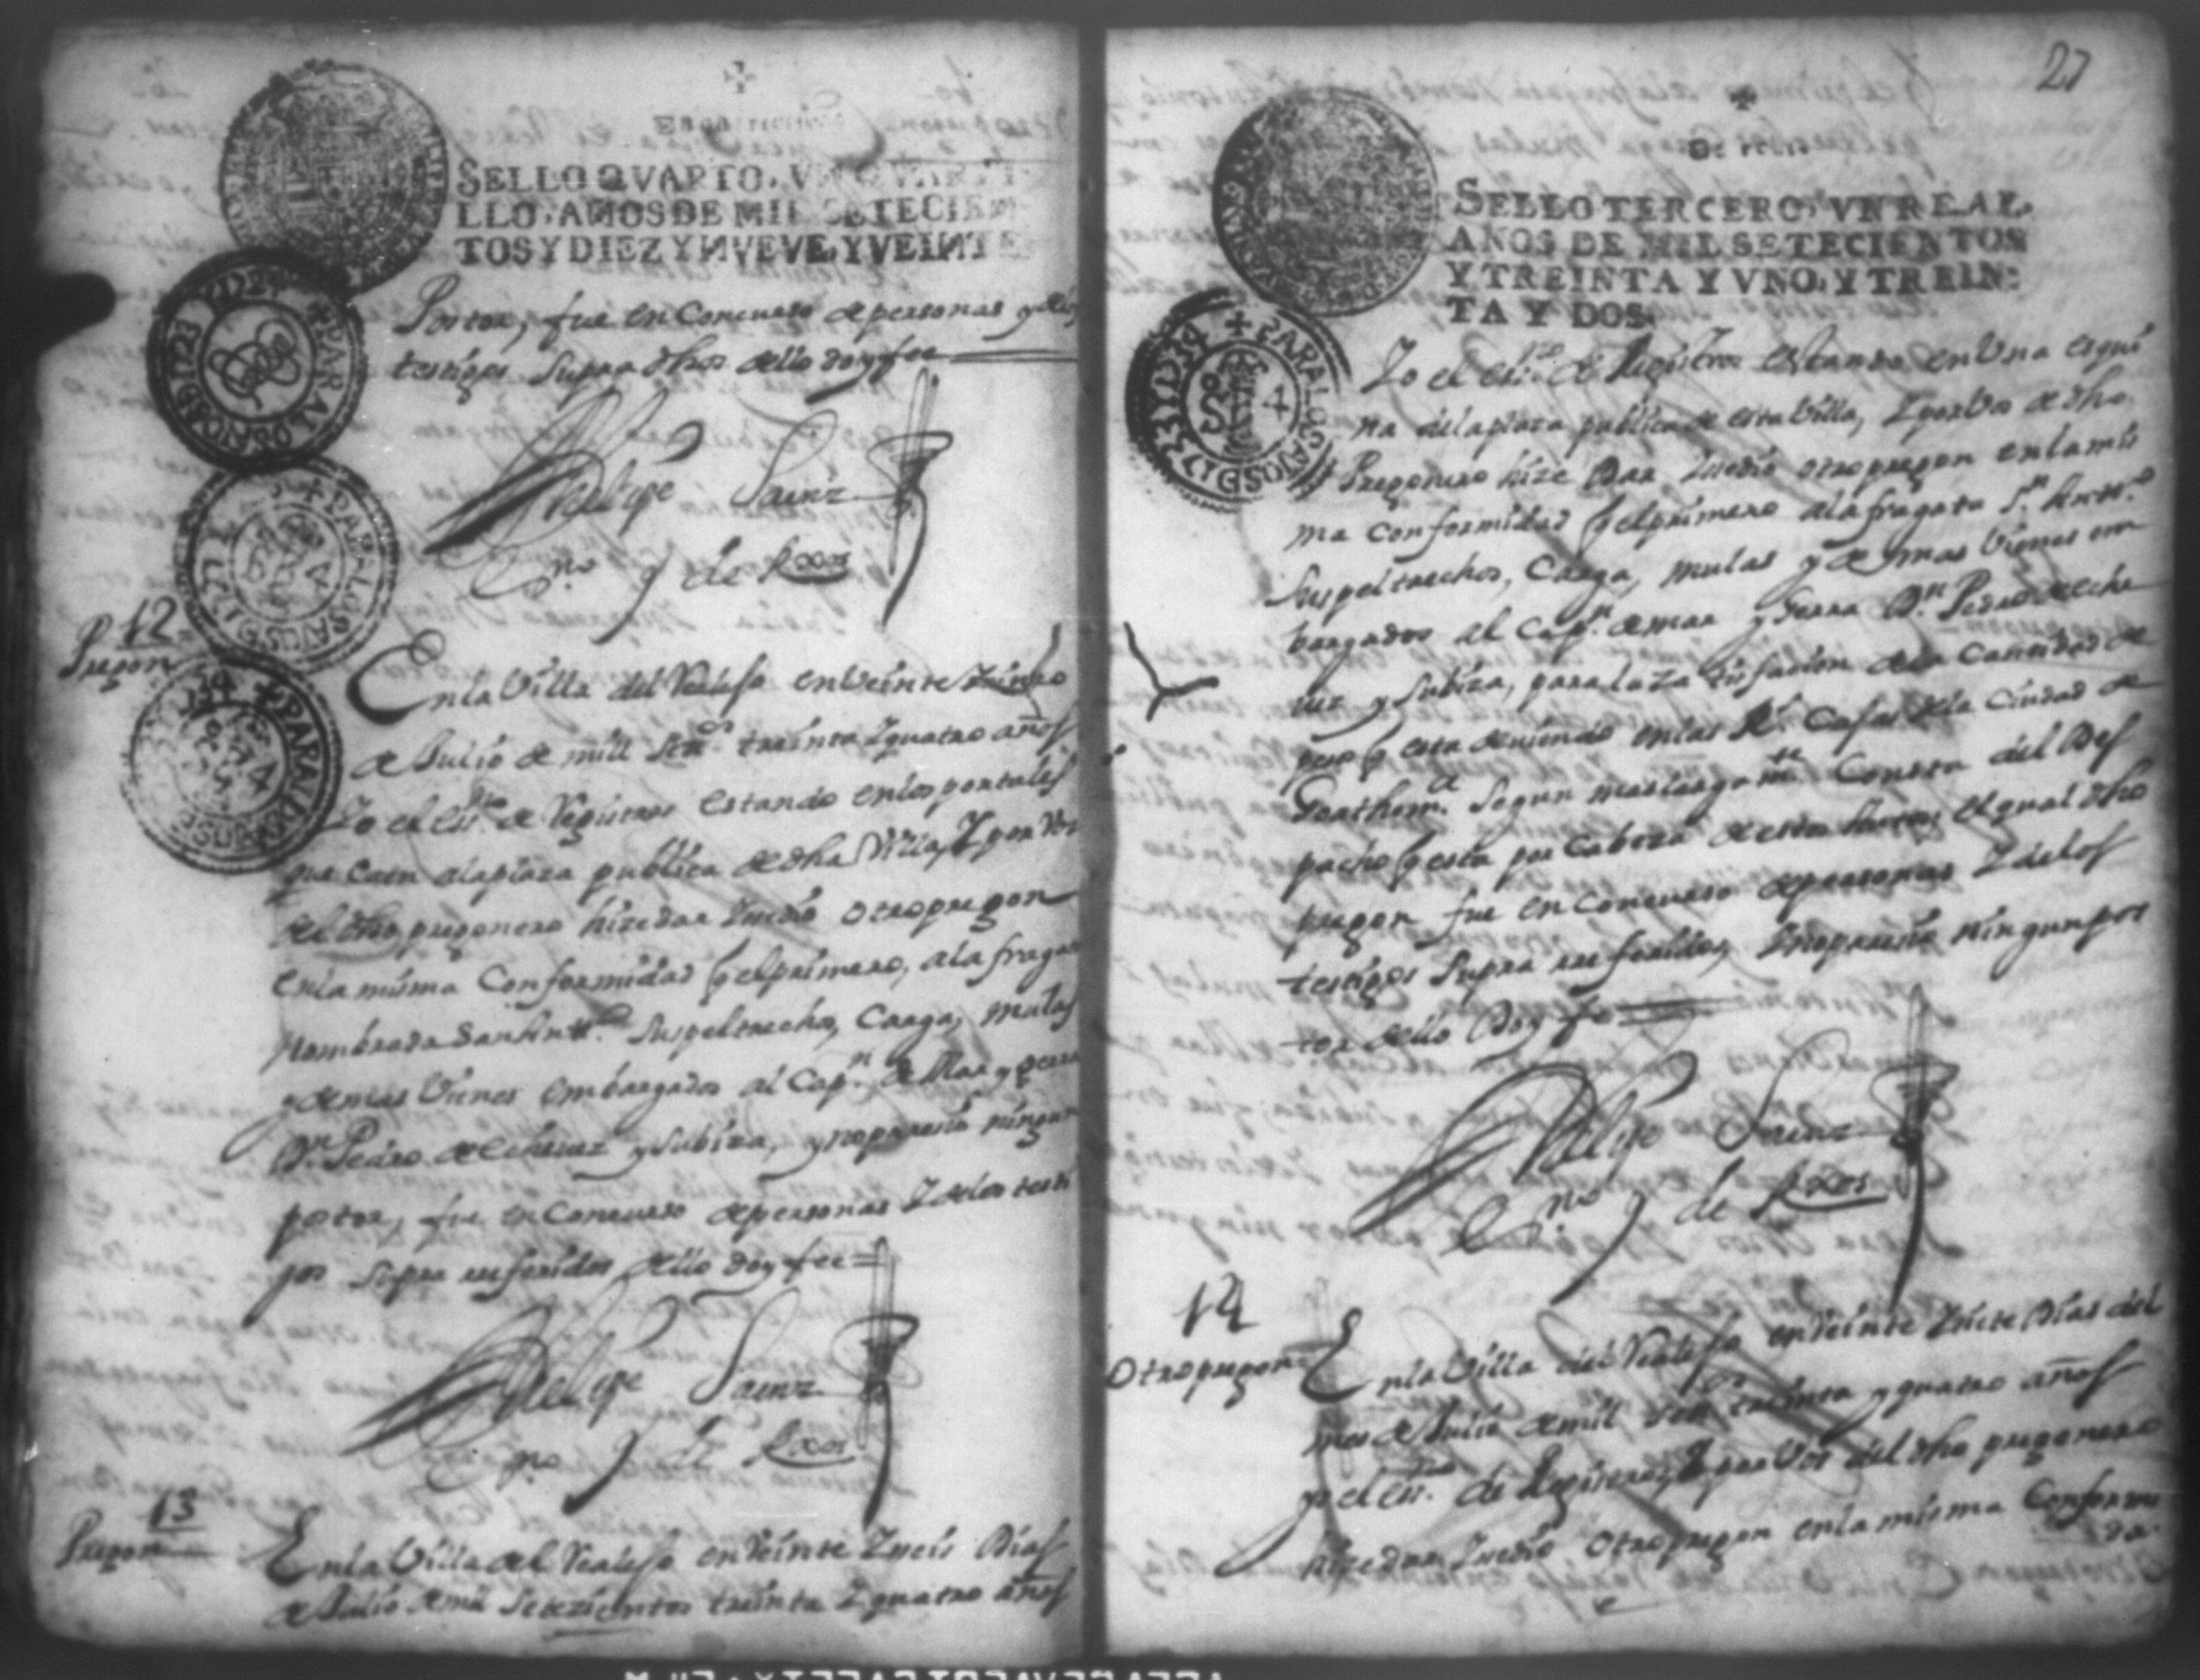 SELLO QVARTO, VN QVARTI
LLO, AÑOS DE MIL SETECIEN
TOS Y DIEZ Y NVEVE, Y VEINTE
Postor, fue en Concurso de personas y de los
testigos supra dhos dello doy fee
Phelipe Sainz
Essno y de Rxos
12
Pregon
En la Villa del Realejo en veinte Zinco
de Julio de mill Settos treinta Y quatro años
Yo el essno de Registros estando en los portales
que caen a la plaza publica de dha Villa, Y por Vos
del dho pregonero hize dar Y se dio otro pregon
en la misma Conformidad q el primero, a la fraga
Nombrada San Antto Sus peltrechos, Carga, mulas
y demas Vienes embargados al Capn de Mar y guerra
Dn Pedro de Echeuerz y Subiza, y no parezio ningun
postor, fue en Concurso de personas Y de los testi
gos supra referidos dello doy fee
Phelipe Sainz
Essno y de Rxos
13
Pregon
En la Villa del Realejo en Veinte Y seis Dias
de Julio de mil Setezientos treinta Y quatro años
27
SELLO TERCERO, VN REAL,
AÑOS DE MIL SETECIENTOS
Y TREINTA Y VNO, Y TREIN-
TA Y DOS.
PARA LOS AÑOS D 1733 Y D 734
Yo el essno de Registros estando en Vna esqui
na de la plaza publica de esta Villa, Y por Vos de dho
Pregonero hize Dar Y se dio otro pregon en la mis
ma conformidad q el primero a la fragata Sn Antto
Sus peltrechos, Carga, mulas y demas Vienes em
bargados al Capn de mar y Guerra Dn Pedro de Eche
uerz y Subiza, para la Zatisfacion de la Cantidad de
peso q esta deuiendo en las Rs Cajas de la Ciudad de
Goathema Segun mas largamte Consta del Des
pacho q esta por Cabeza de estos Auttos, el qual dho
pregon fue en Concurso de personas Y de los
testigos supra referidos, Y no parezio ningun pos
tor dello Doy fe
Phelipe Sainz
Essno y de Rxos
14
Otro pregon
En la Villa del Realejo en Veinte Y siete Dias del
mes de Julio de mil Settos treinta y quatro años
yo el essno de Registros, Y por Vos del dho pregonero
hize dar Y se dio Otro pregon en la misma Conformi
da